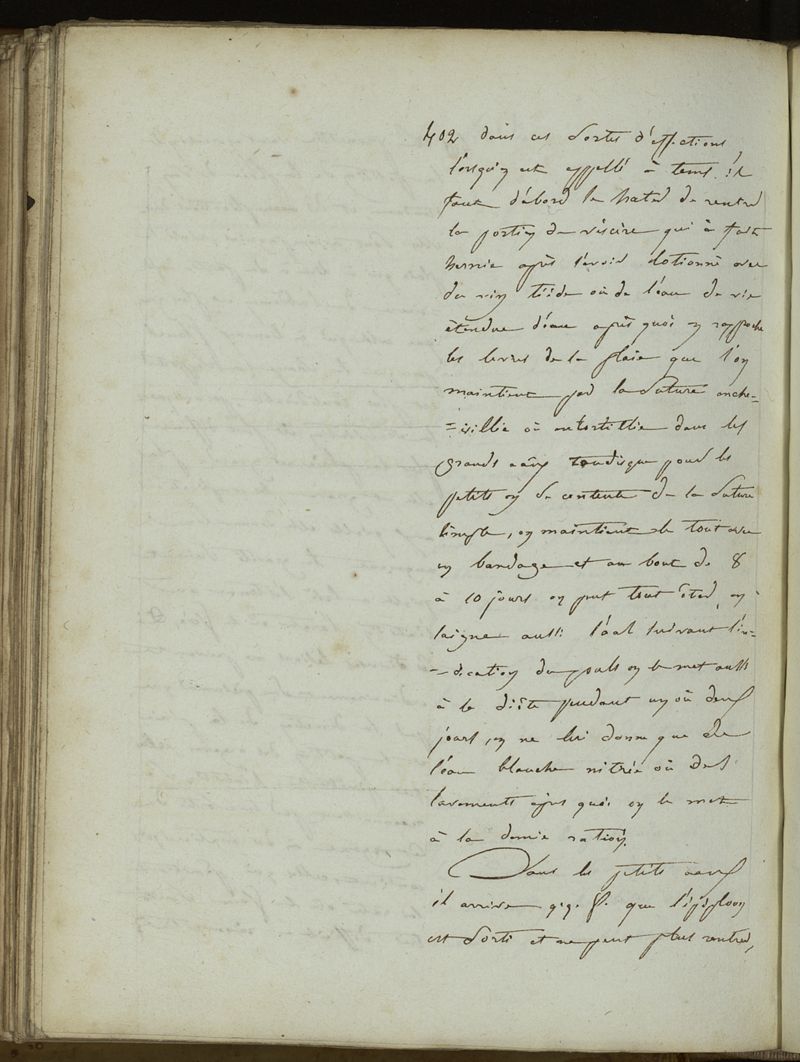 402 dans ces sortes d'affections,
lorsqu'on est appellé à tems, il
faut d'abord se hater de rentrer
la portion de viscère qui à fait
hernie après l'avoir lotionné avec
du vin tiède où de l'eau de vie
étendue d'eau après quoi on rapproche
les levres de la plaie que l'on
maintient par la suture enche-
=villée où entortillée dans les
grands tandisque pour les
petits on se contente de la suture
simple, on maintient le tout avec
un bandage et au bout de 8
à 10 jours on peut tout ôter, on
saigne aussi suivant l'in-
=dication du pouls on le met aussi
à la diète pendant un où deux
jours, on ne lui donne que de
l'eau blanche nitrée où des
lavements après quoi on le met
à la demie ration.
Dans les petits
il arrive q.q. f. que l'épiploon
est sorti et ne peut plus rentrer,